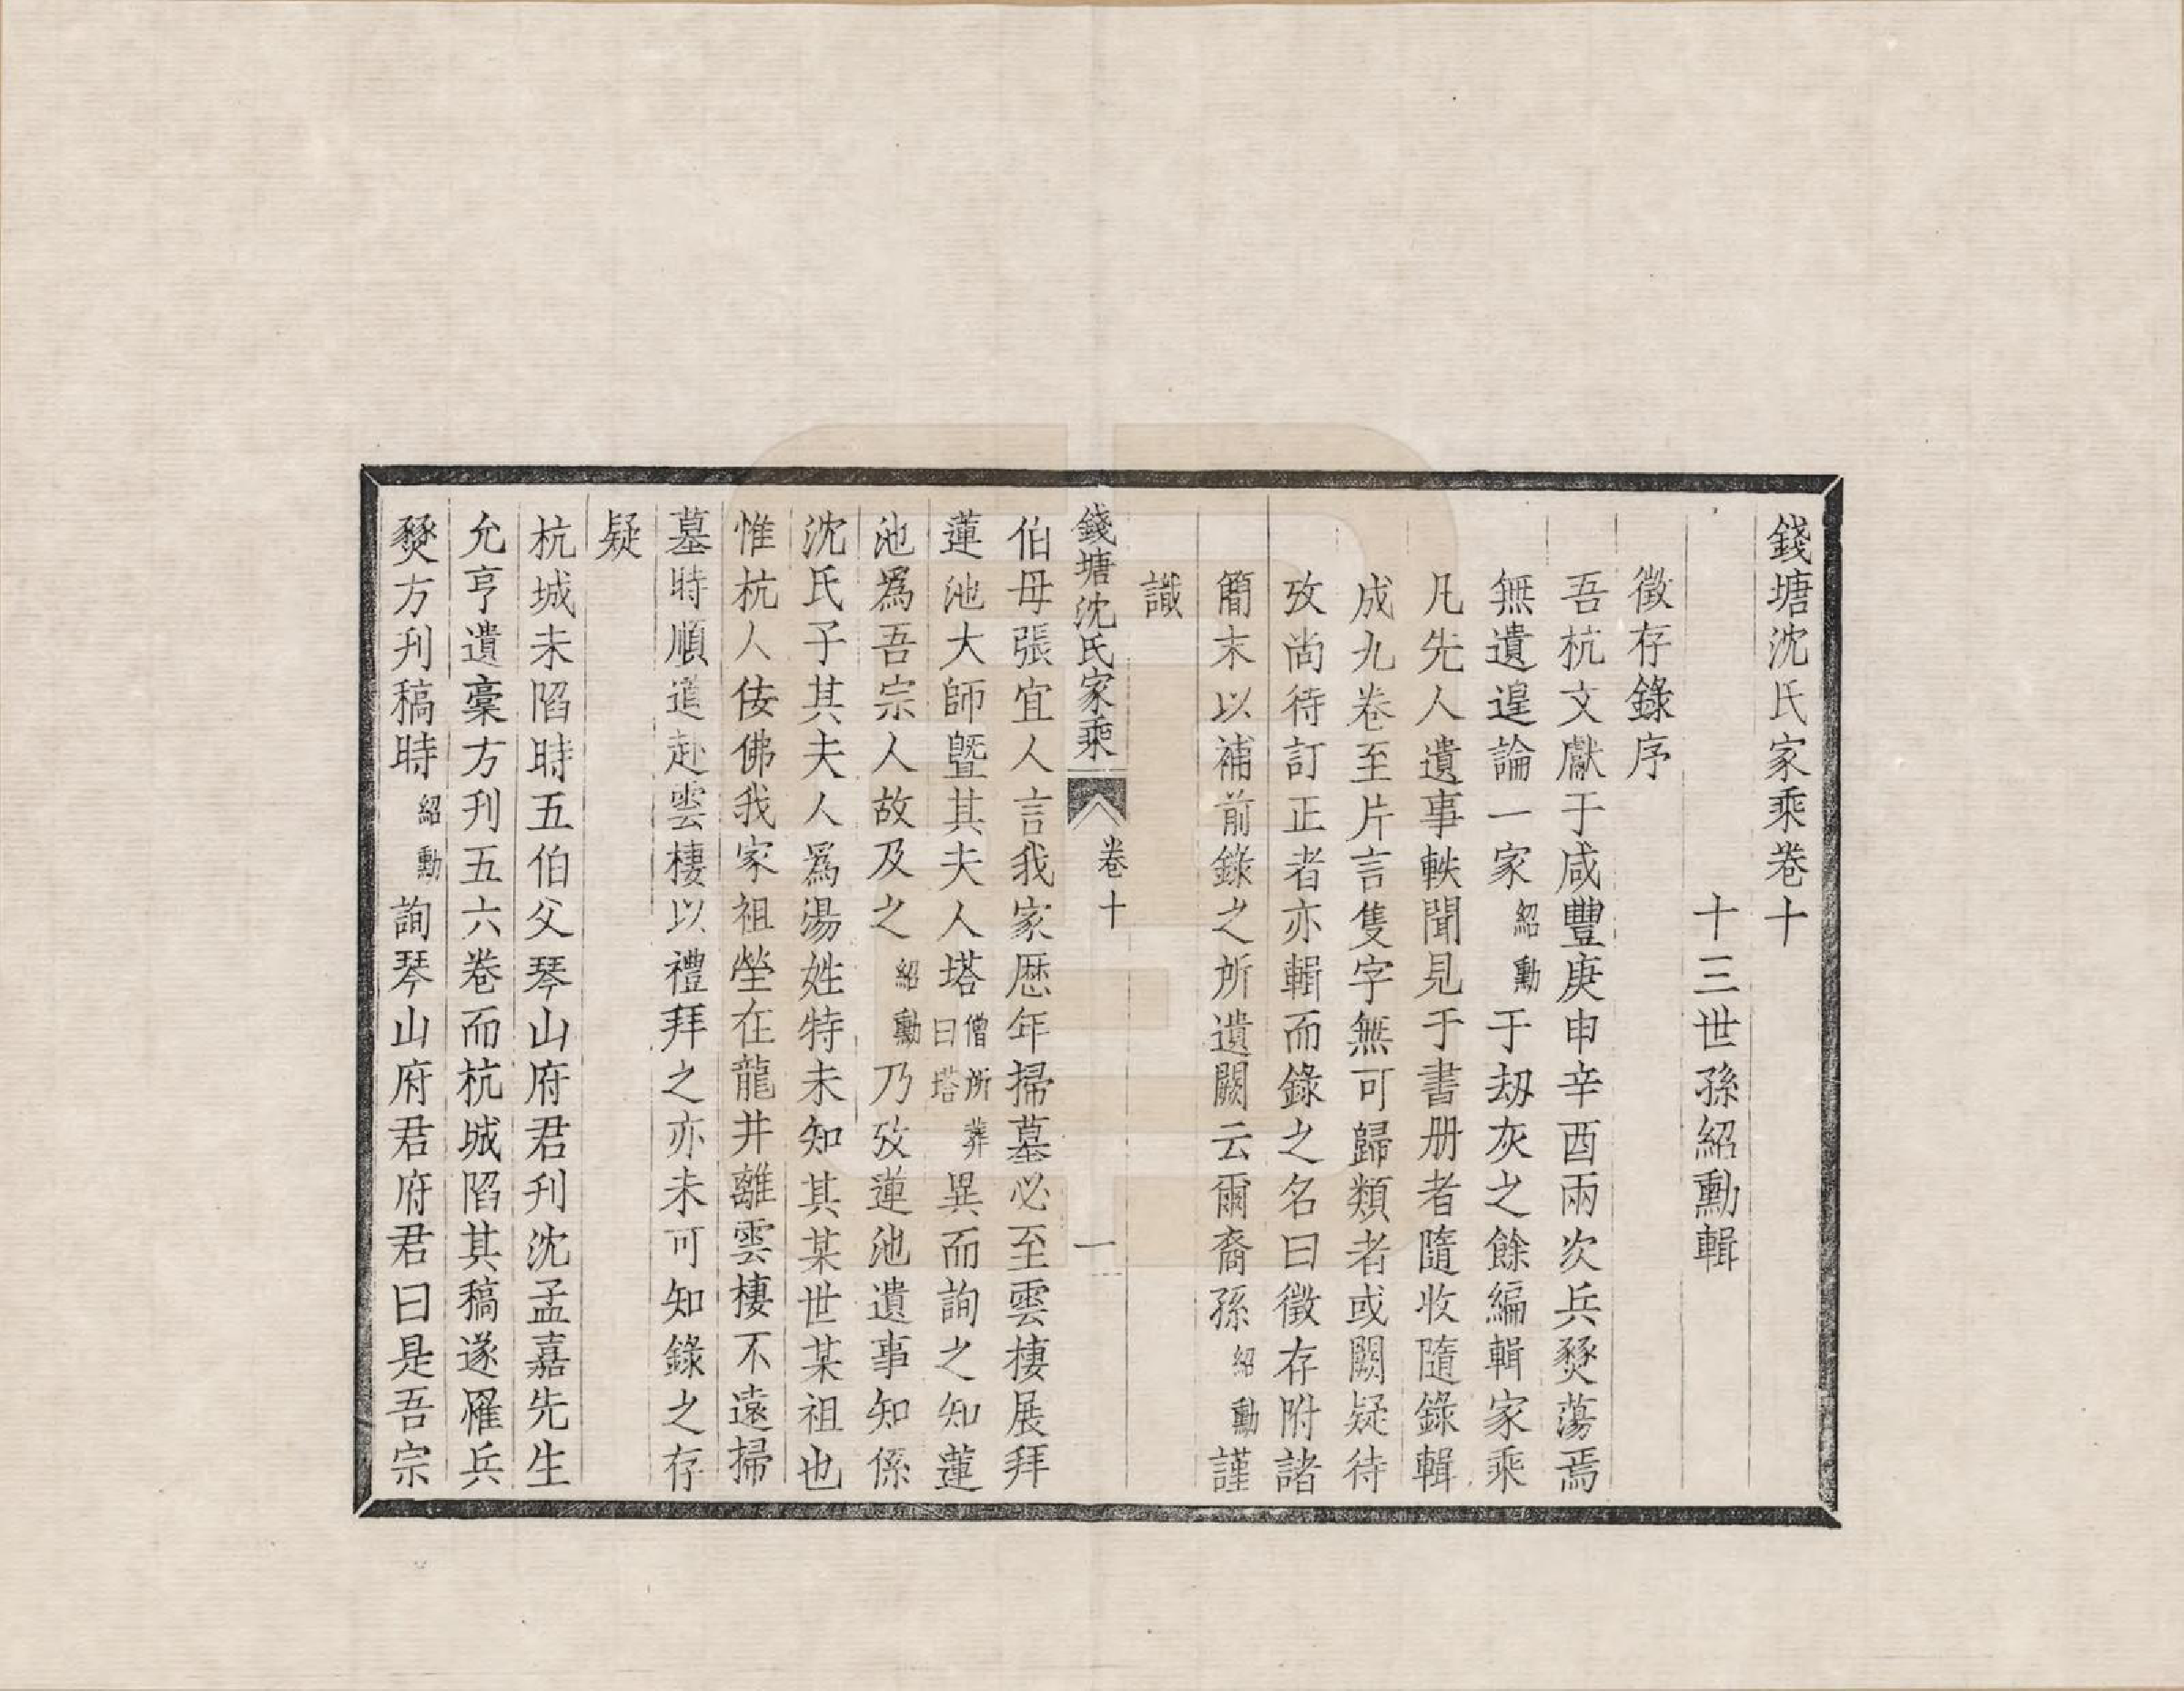 錢塘沈氏家乘卷十
十三世孫紹勳輯
徵存錄序
吾杭文獻于咸豐庚申辛酉兩次兵燹蕩焉
無遺遑論一家紹勳于刼灰之餘編輯家乘
凡先人遺事軼聞見于書册者隨收隨錄輯
成九卷至片言隻字無可歸類者或闕疑待
攷尚待訂正者亦輯而錄之名曰徵存附諸
簡末以補前錄之所遺闕云爾裔孫紹勳謹
識
錢塘沈氏家乘 卷十 一
伯母張宜人言我家歷年掃墓必至雲棲展拜
蓮池大師暨其夫人塔僧所葬曰塔異而詢之知蓮
池爲吾宗人故及之紹勳乃攷蓮池遺事知係
沈氏子其夫人爲湯姓特未知其某世某祖也
惟杭人佞佛我家祖塋在龍井離雲棲不遠掃
墓時順道赴雲棲以禮拜之亦未可知錄之存
疑
杭城未陷時五伯父琴山府君刋沈孟嘉先生
允亨遺稾方刋五六卷而杭城陷其稿遂罹兵
燹方刋稿時紹勳詢琴山府君府君曰是吾宗